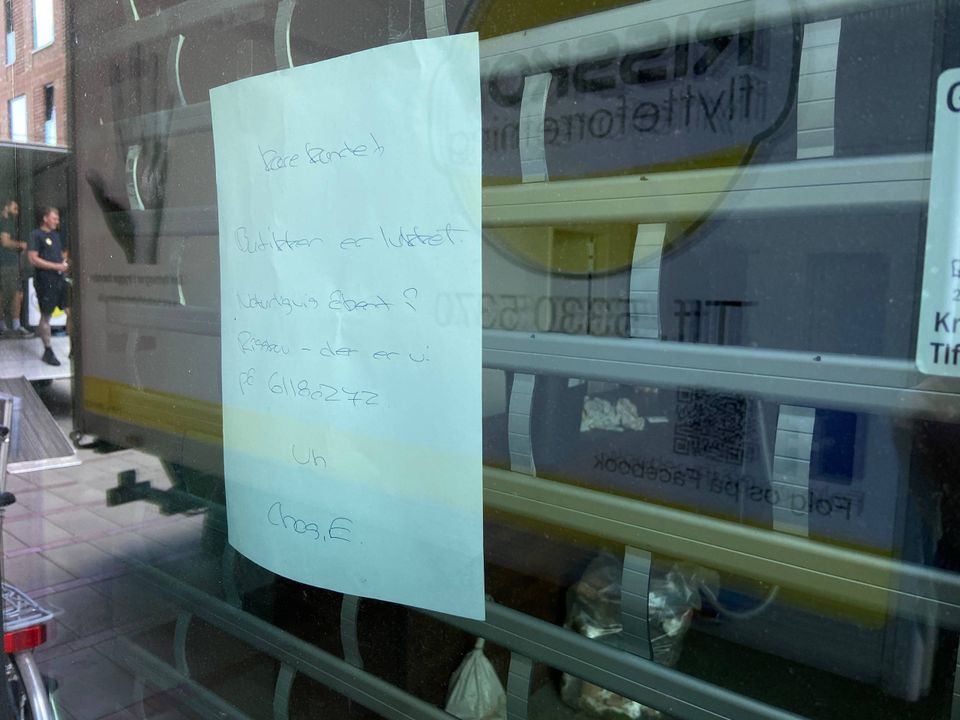 Kære kunder
Butikken er lukket.
Naturligvis åbent ?
Risskov - der er vi
på 61180272
Vh
Chas, E.
RISSKO
flytteforretning
Tlf 5330 5370
Følg os på Facebook
G
Kr
Tlf